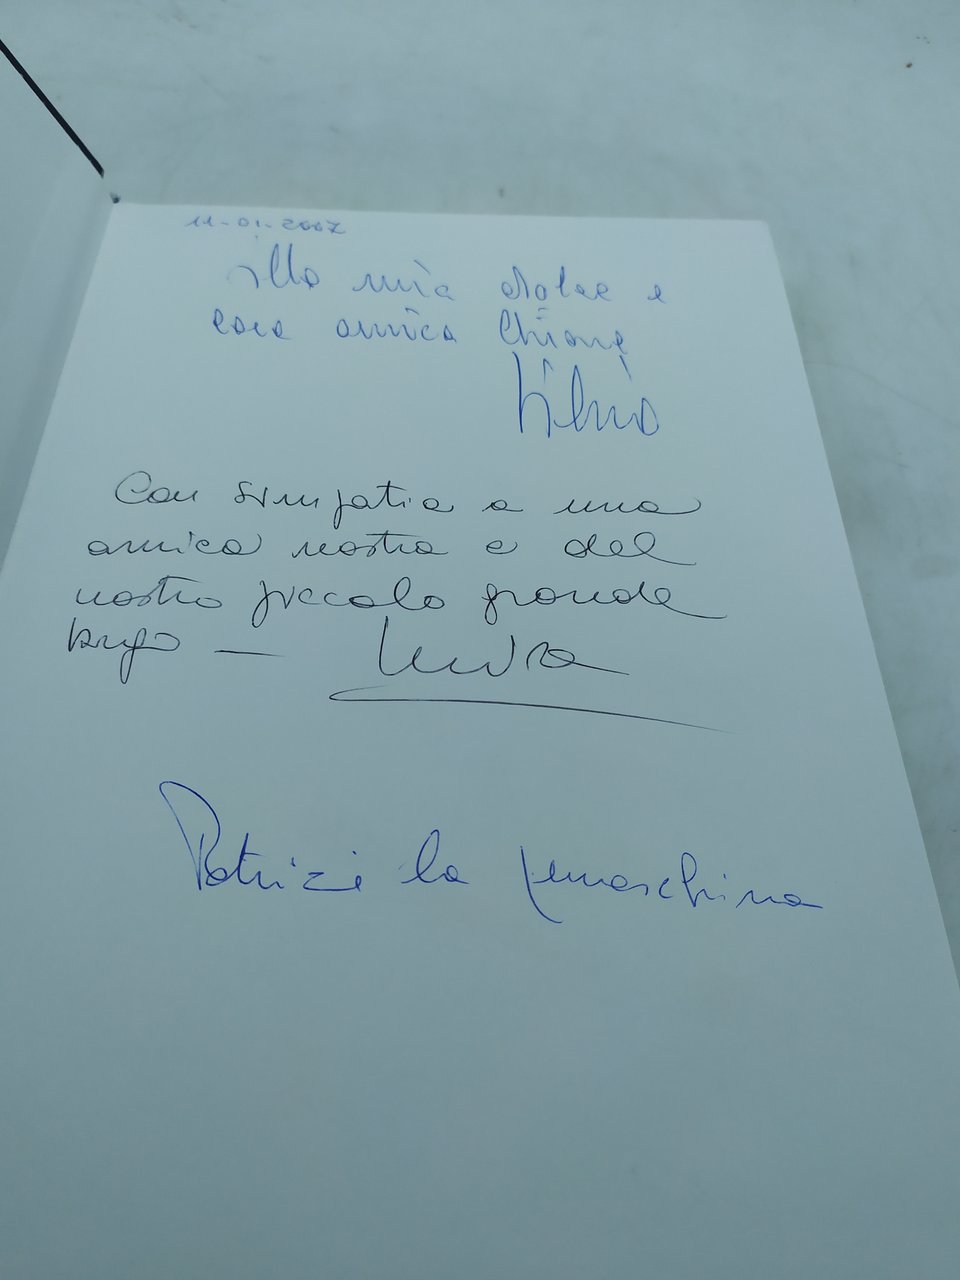 11-01-2007
Alla mia dolce e
cara amica
Con simpatia a una
amica nostra e del
nostro piccolo grande
borgo —
Patrizia la